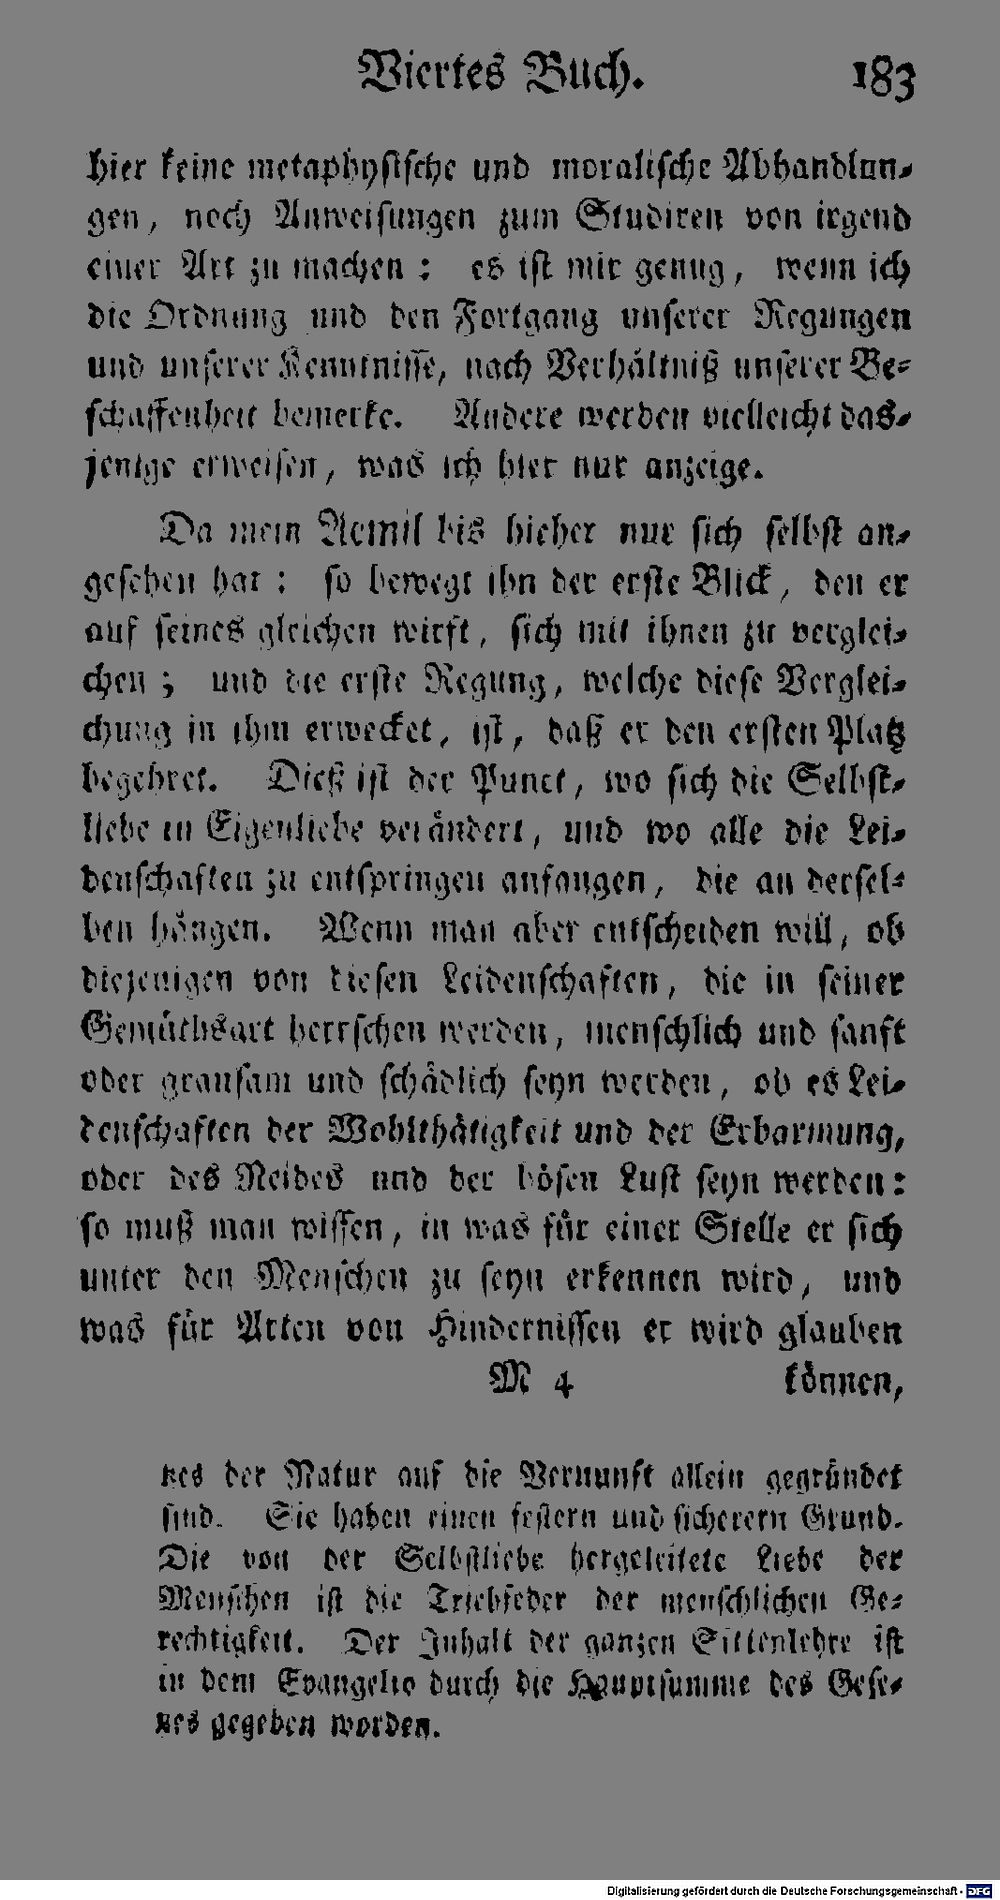 Viertes Buch. 183
hier keine metaphysische und moralische Abhandlun-
gen, noch Anweisungen zum Studiren von irgend
einer Art zu machen: es ist mir genug, wenn ich
die Ordnung und den Fortgang unserer Regungen
und unserer Kenntnisse, nach Verhältniß unserer Be-
schaffenheit bemerke. Andere werden vielleicht das-
jenige erweisen, was ich hier nur anzeige.
Da mein Aemil bis hieher nur sich selbst an-
gesehen hat: so bewegt ihn der erste Blick, den er
auf seines gleichen wirft, sich mit ihnen zu verglei-
chen; und die erste Regung, welche diese Verglei-
chung in ihm erwecket, ist, daß er den ersten Platz
begehret. Dieß ist der Punct, wo sich die Selbst-
liebe in Eigenliebe verändert, und wo alle die Lei-
denschaften zu entspringen anfangen, die an dersel-
ben hängen. Wenn man aber entscheiden will, ob
diejenigen von diesen Leidenschaften, die in seiner
Gemüthsart herrschen werden, menschlich und sanft
oder grausam und schädlich seyn werden, ob es Lei-
denschaften der Wohlthätigkeit und der Erbarmung,
oder des Neides und der bösen Lust seyn werden:
so muß man wissen, in was für einer Stelle er sich
unter den Menschen zu seyn erkennen wird, und
was für Arten von Hindernissen er wird glauben
M 4 können,
tzes der Natur auf die Vernunft allein gegründet
sind. Sie haben einen festern und sicherern Grund.
Die von der Selbstliebe hergeleitete Liebe der
Menschen ist die Triebfeder der menschlichen Ge-
rechtigkeit. Der Inhalt der ganzen Sittenlehre ist
in dem Evangelio durch die Hauptsumme des Gese-
tzes gegeben worden.
Digitalisierung gefördert durch die Deutsche Forschungsgemeinschaft - DFG